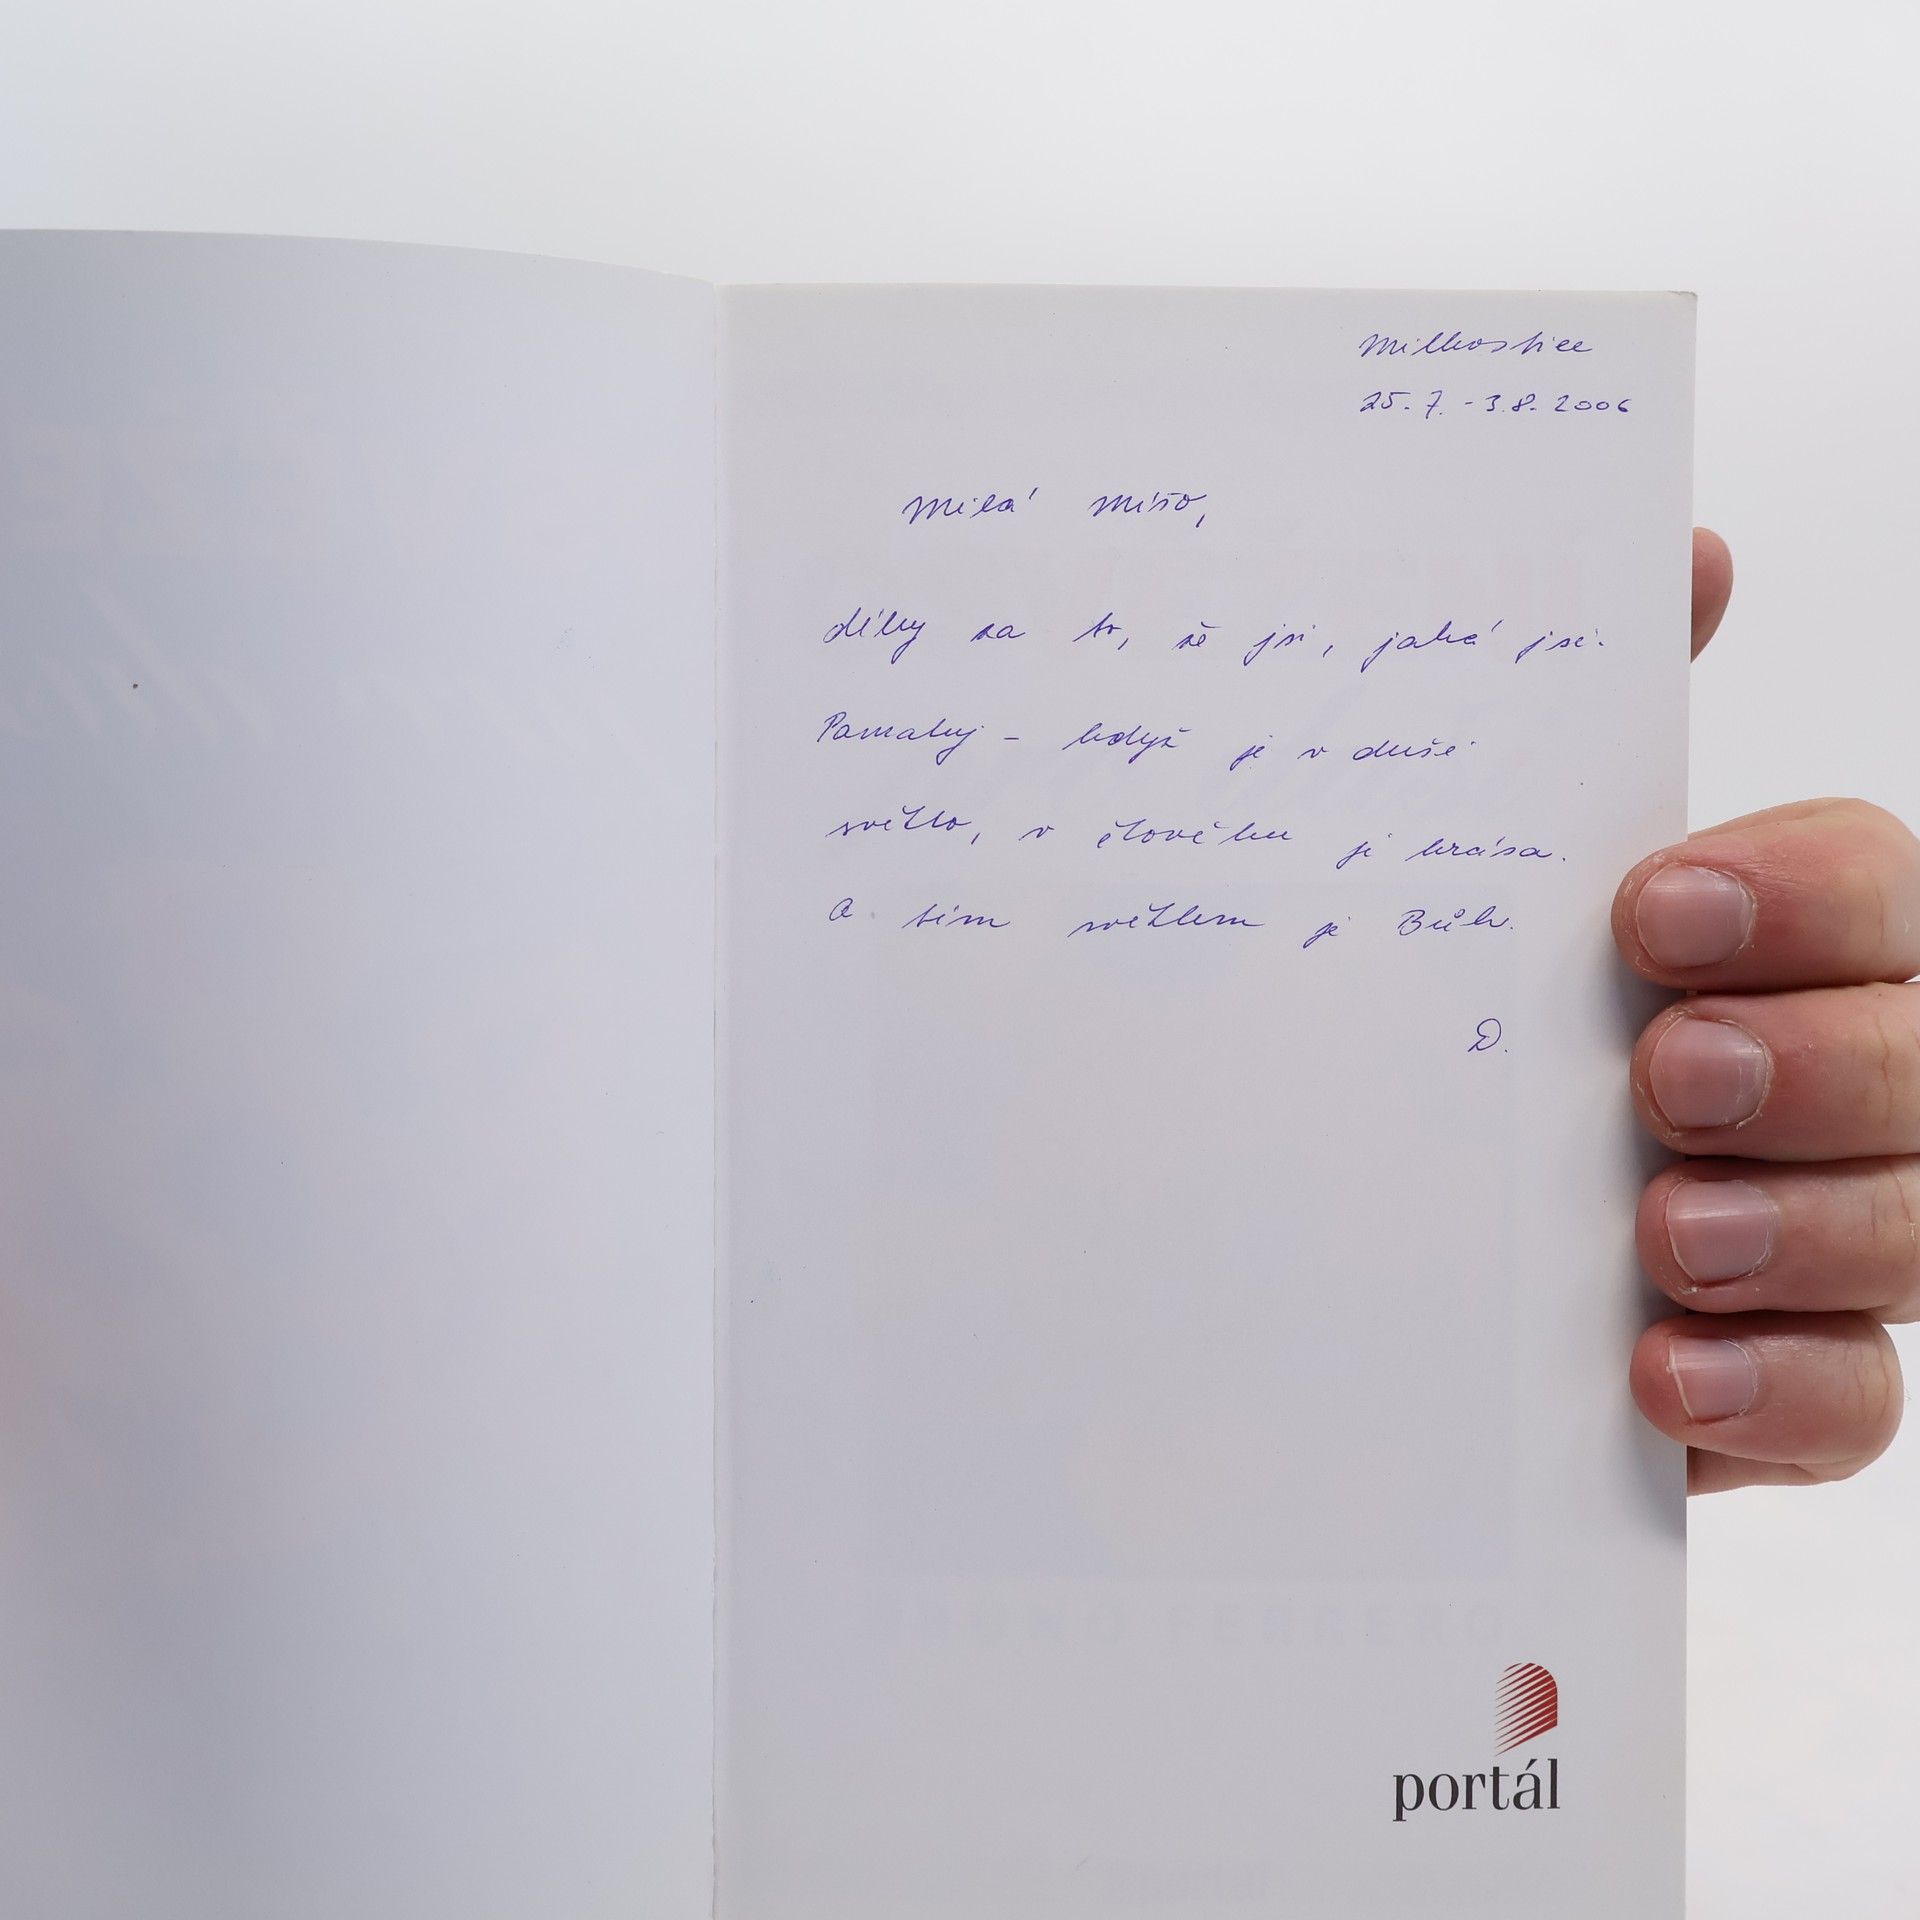 Milkostice
25. 7. - 3. 8. 2006
Milá Míšo,
díky za to, že jsi, jaká jsi.
Pamatuj - když je v duši
světlo, v člověku je krása.
A tím světlem je Bůh.
D.
FERRERO
portál